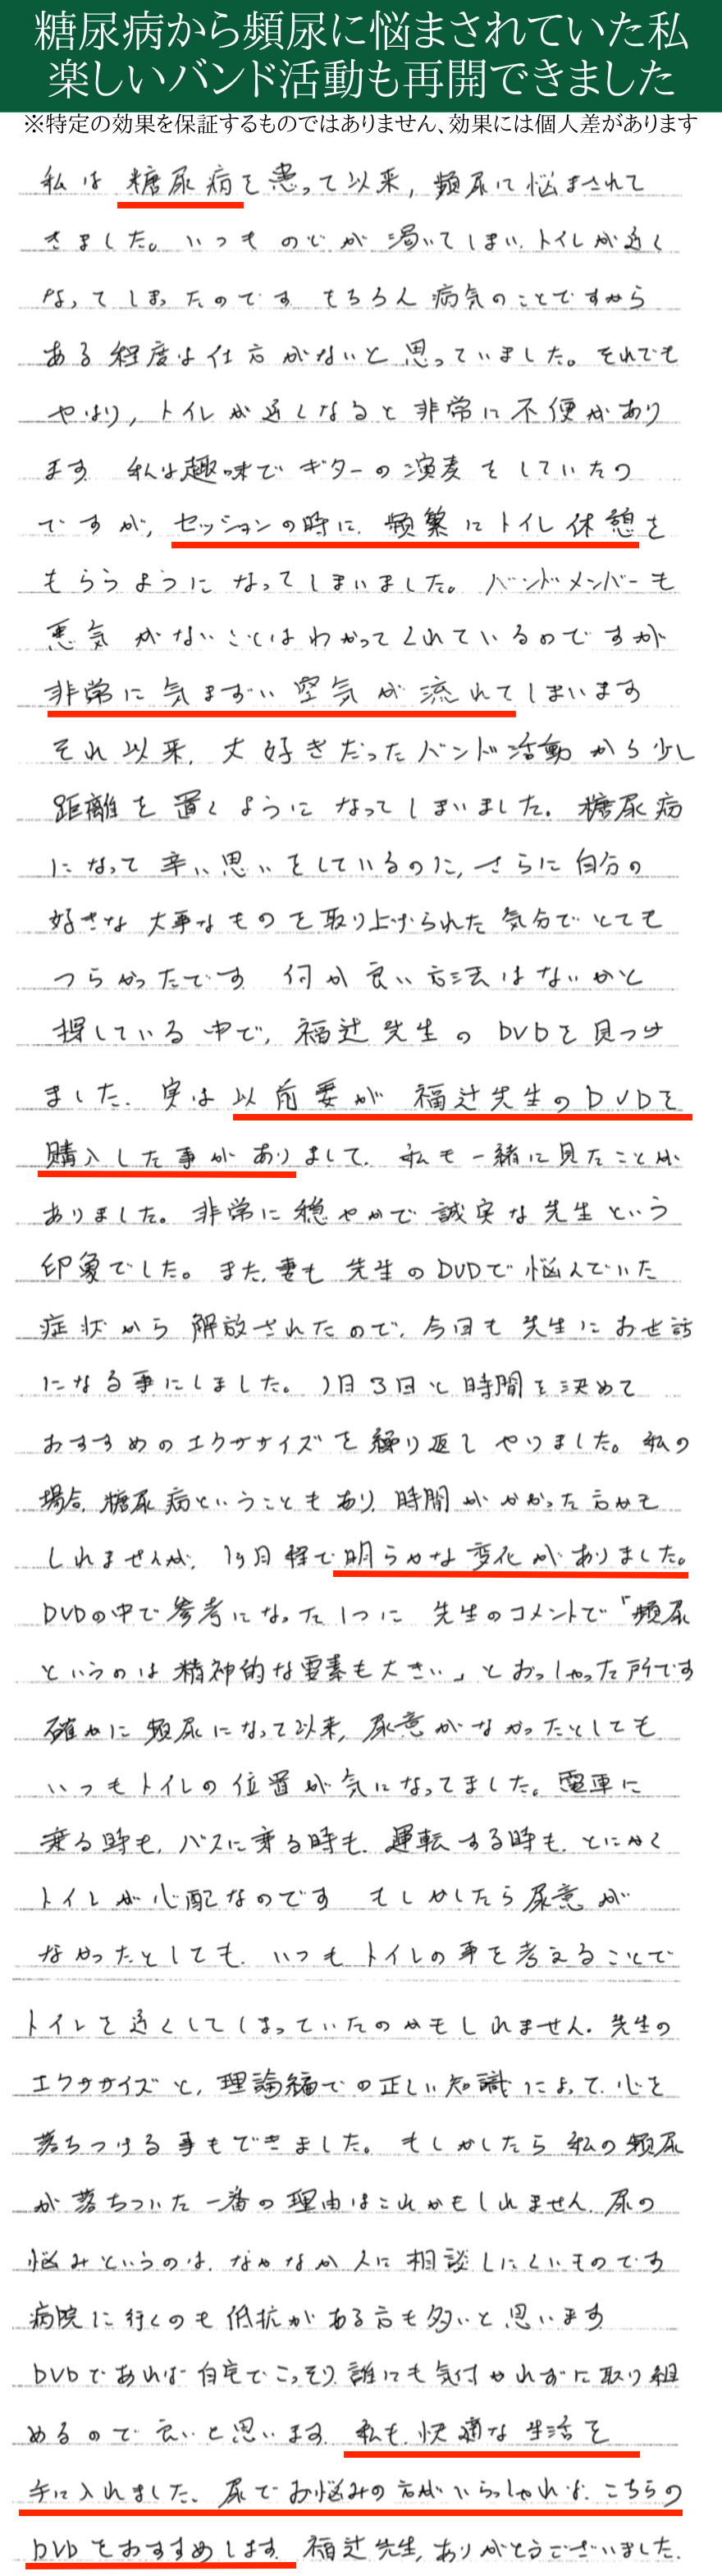 糖尿病から頻尿に悩まされていた私
楽しいバンド活動も再開できました
※特定の効果を保証するものではありません、効果には個人差があります
私は糖尿病を患って以来,頻尿に悩まされて
きました。いつものどが渇いてしまい、トイレが近く
なってしまったのです もちろん病気のことですから
ある程度は仕方がないと思っていました。それでも
やはり,トイレが近くなると非常に不便があり
ます 私は趣味でギターの演奏をしていたの
ですが,セッションの時に、頻繁にトイレ休憩を
もらうようになってしまいました。バンドメンバーも
悪気がないことはわかってくれているのですが
非常に気まずい空気が流れてしまいます
それ以来、大好きだったバンド活動から少し
距離を置くようになってしまいました。糖尿病
になって辛い思いをしているのに,さらに自分の
好きな大事なものを取り上げられた気分でとても
つらかったです 何か良い方法はないかと
探している中で,福辻先生のDVDを見つけ
ました、実は以前妻が福辻先生のDVDを
購入した事がありまして、私も一緒に見たことが
ありました。非常に穏やかで誠実な先生という
印象でした。また、妻も先生のDVDで悩んでいた
症状から解放されたので、今回も先生にお世話
になる事にしました。1日3回と時間を決めて
おすすめのエクササイズを繰り返しやりました。私の
場合、糖尿病ということもあり、時間がかかった方かも
しれませんが、1ヶ月程で明らかな変化がありました。
DVDの中で参考になった1つに 先生のコメントで「頻尿
というのは精神的な要素も大きい」とおっしゃった所です
確かに頻尿になって以来,尿意がなかったとしても
いつもトイレの位置が気になってました。電車に
乗る時も,バスに乗る時も、運転する時も、とにかく
トイレが心配なのです もしかしたら尿意が
なかったとしても、いつもトイレの事を考えることで
トイレを近くしてしまっていたのかもしれません。先生の
エクササイズと,理論編での正しい知識によって、心を
落ちつける事もできました。もしかしたら私の頻尿
が落ちついた一番の理由はこれかもしれません、尿の
悩みというのは、なかなか人に相談しにくいものです
病院に行くのも抵抗がある方も多いと思います
DVDであれば自宅でこっそり誰にも気付かれずに取り組
めるので良いと思います、私も、快適な生活を
手に入れました、尿でお悩みの方がいらっしゃれば、こちらの
DVDをおすすめします 福辻先生,ありがとうございました、